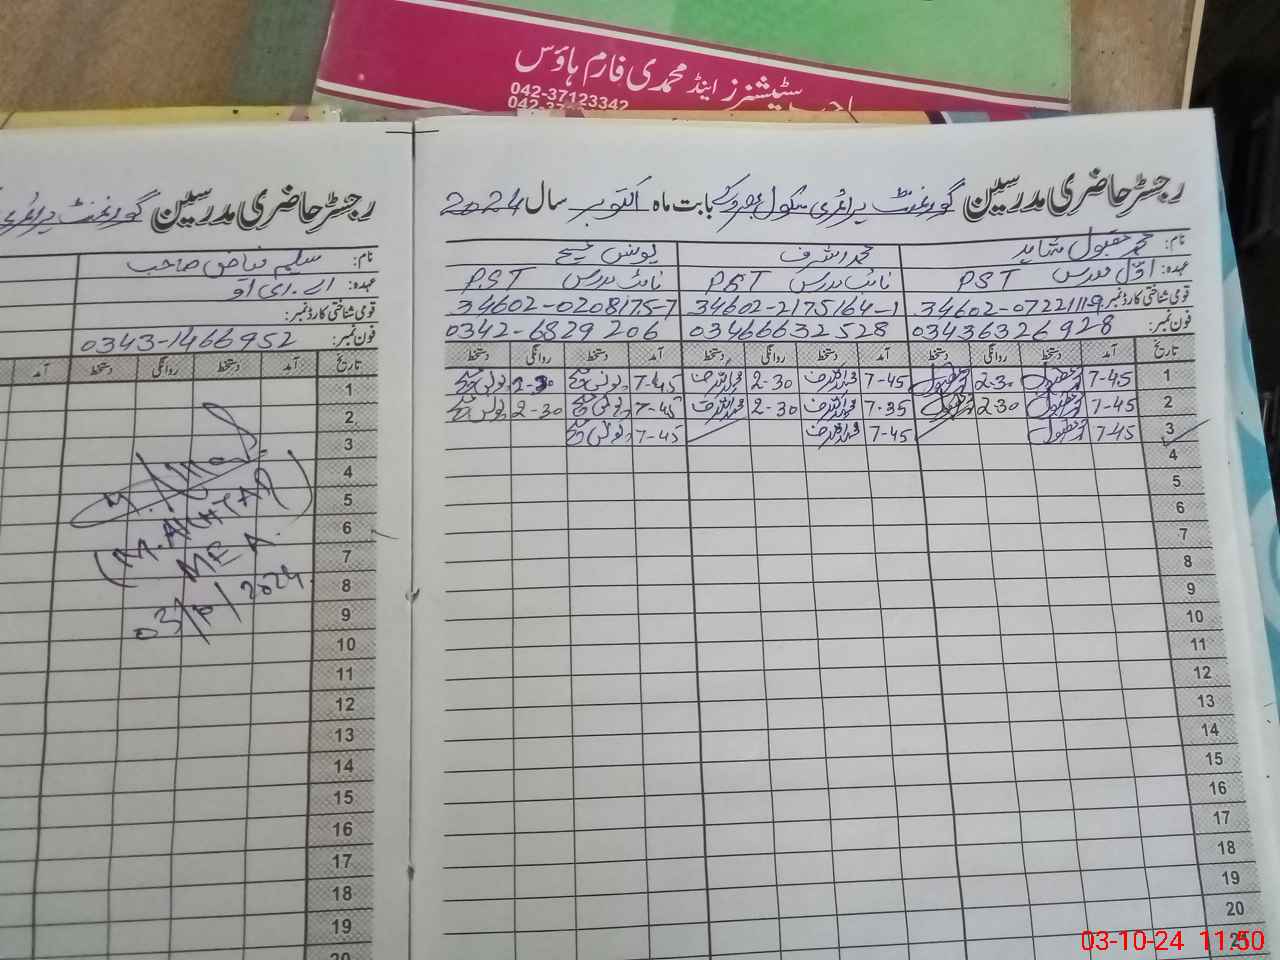 سٹیشنرز اینڈ محمدی فارم ہاؤس
042-37123342
رجسٹر حاضری مدرسین گورنمنٹ پرائمری سکول بابت ماہ اکتوبر سال 2024
نام: محمد مقبول شاہد محمد اشرف یونس مسیح
عہدہ: اوّل مدرس PST نائب مدرس PST نائب مدرس PST
قومی شناختی کارڈ نمبر: 34602-0722111-9 34602-2175164-1 34602-0208175-7
فون نمبر: 03436326928 03466632528 0342-6829206
تاریخ آمد دستخط روانگی دستخط آمد دستخط روانگی دستخط آمد دستخط روانگی دستخط
1 7-45 مقبول 2-30 مقبول 7-45 محمد اشرف 2-30 محمد اشرف 7-45 یونس مسیح 2-30 یونس مسیح
2 7-45 مقبول 2-30 مقبول 7-35 محمد اشرف 2-30 محمد اشرف 7-45 یونس مسیح 2-30 یونس مسیح
3 7-45 مقبول 7-45 محمد اشرف 7-45 یونس مسیح
4
5
6
7
8
9
10
11
12
13
14
15
16
17
18
19
20
21
رجسٹر حاضری مدرسین گورنمنٹ پرائمری
نام: سلیم فیاض صاحب
عہدہ: اے.ای او
قومی شناختی کارڈ نمبر:
فون نمبر: 0343-1466952
تاریخ آمد دستخط روانگی دستخط آمد
1
2
3
4
5
6
7
8
9
10
11
12
13
14
15
16
17
18
19
20
(M.AKHTAR)
MEA.
03/10/2024
03-10-24 11:50